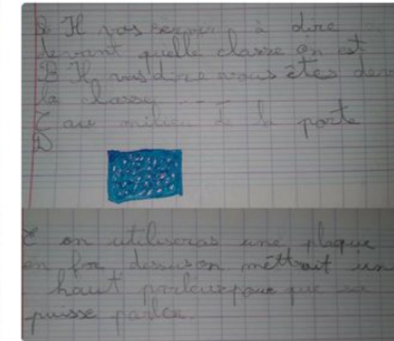 Il vas servir à dire
devant quelle classe on est
B Il vas dire vous êtes de
la classe
C au milieu de la porte
D
E on utiliseras une plaque
en fer dessus on mettrait un
haut parleur pour que sa
puisse parler.